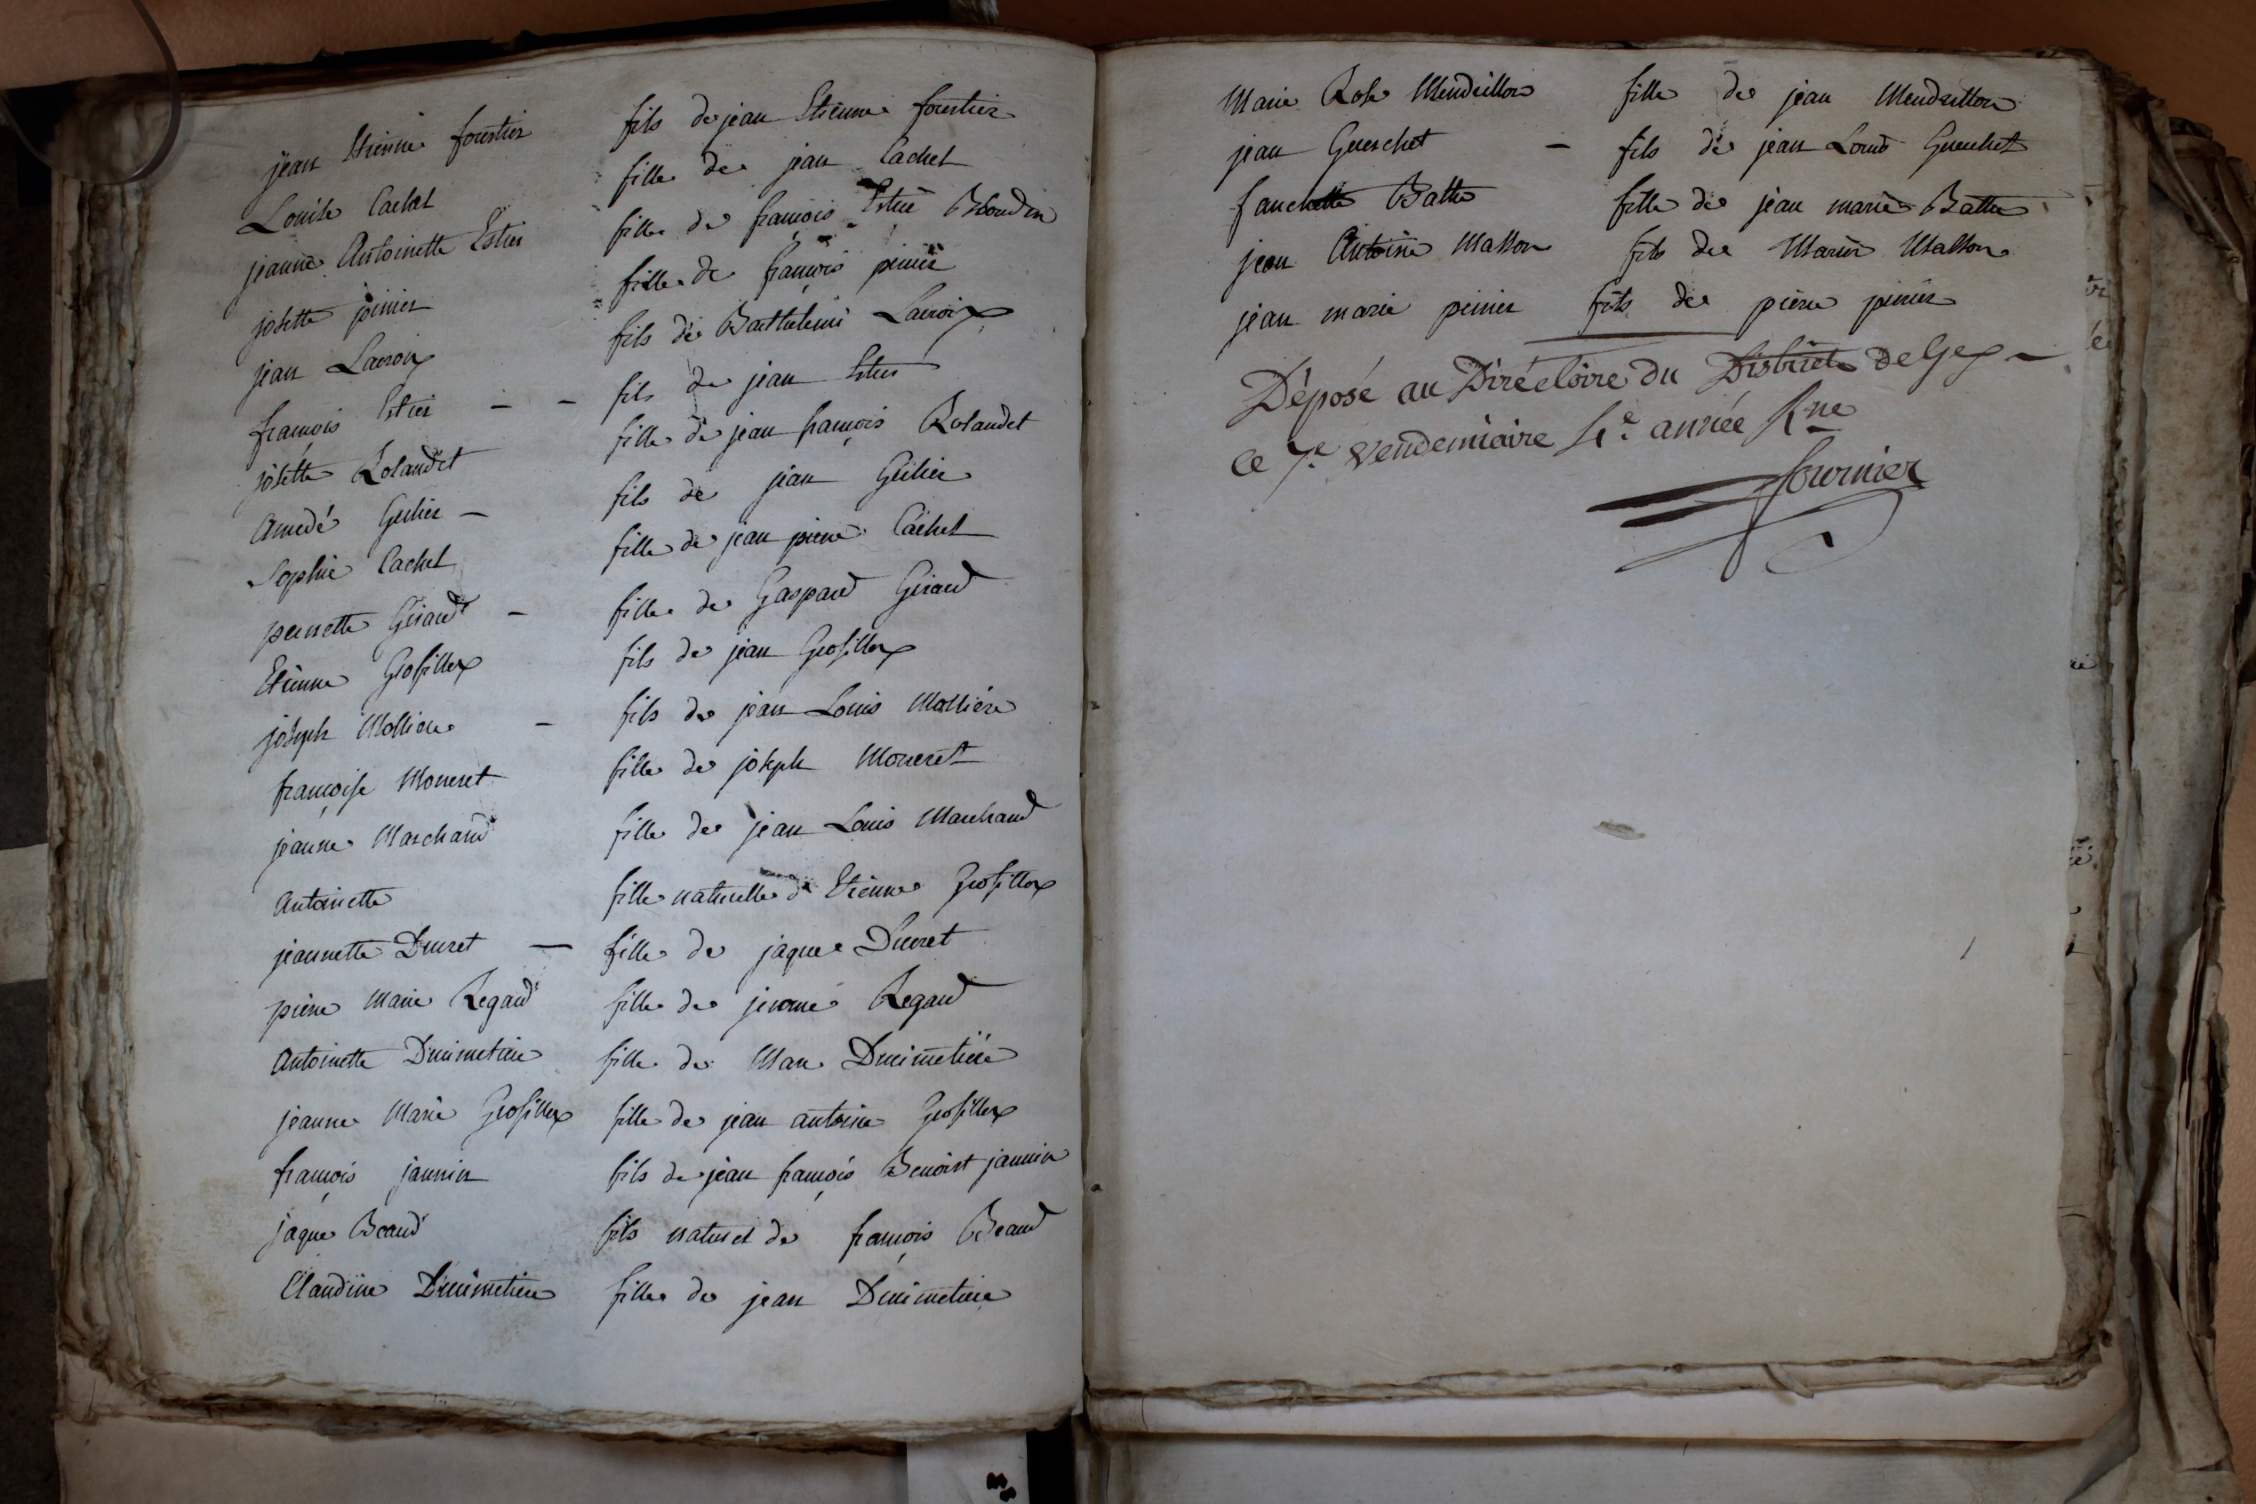 jean Etienne fournier fils de jean Etienne fournier
Louise Cachet fille de jean Cachet
jeanne Antoinette Estier fille de françois Estier Blondin
josette pinier fille de françois pinier
jean Lacroix fils de Barthelemi Lacroix
françois Estier - - fils de jean Estier
josette Rolandet fille de jean françois Rolandet
Amedé Grilier - fils de jean Grilier
Sophie Cachet fille de jean pierre Cachet
pernette Girard - fille de Gaspard Girard
Etienne Grosfillex fils de jean Grosfillex
joseph Molliere - fils de jean Louis Molliére
françoise Moneret fille de joseph Moneret
jeanne Marchand fille de jean Louis Marchand
Antoinette fille naturelle de Etienne Grosfillex
jeannette Ducret - fille de jaque Ducret
pierre Marie Regard fille de jerome Regard
Antoinette Ducimetiere fille de Marc Ducimetiére
jeanne Marie Grosfillex fille de jean antoine Grosfillex
françois jannin fils de jean françois Benoist jannin
jaque Beaud fils naturel de françois Beaud
Claudine Ducimetiere fille de jean Ducimetiere
Marie Rose Mendrillon fille de jean Mendrillon
jean Grenchet - fils de jean Louis Grenchet
fanchette Batte fille de jean marie Batte
jean Antoine Masson fils de Marin Masson
jean marie pinier fils de pierre pinier
Déposé au Diréctoire du District de Gex -
ce 7.e Vendemiaire 4.e année Rne
fournier